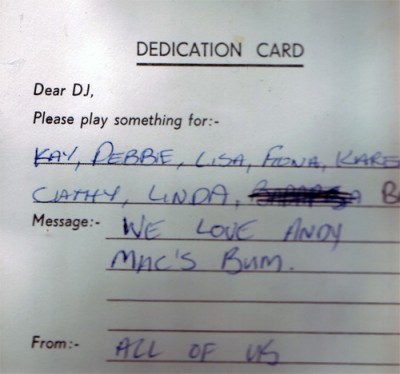 DEDICATION CARD
Dear DJ,
Please play something for:-
KAY, DEBBIE, LISA, FIONA, KARE
CATHY, LINDA, B
Message:- WE LOVE ANDY
MAC'S BUM.
From:- ALL OF US